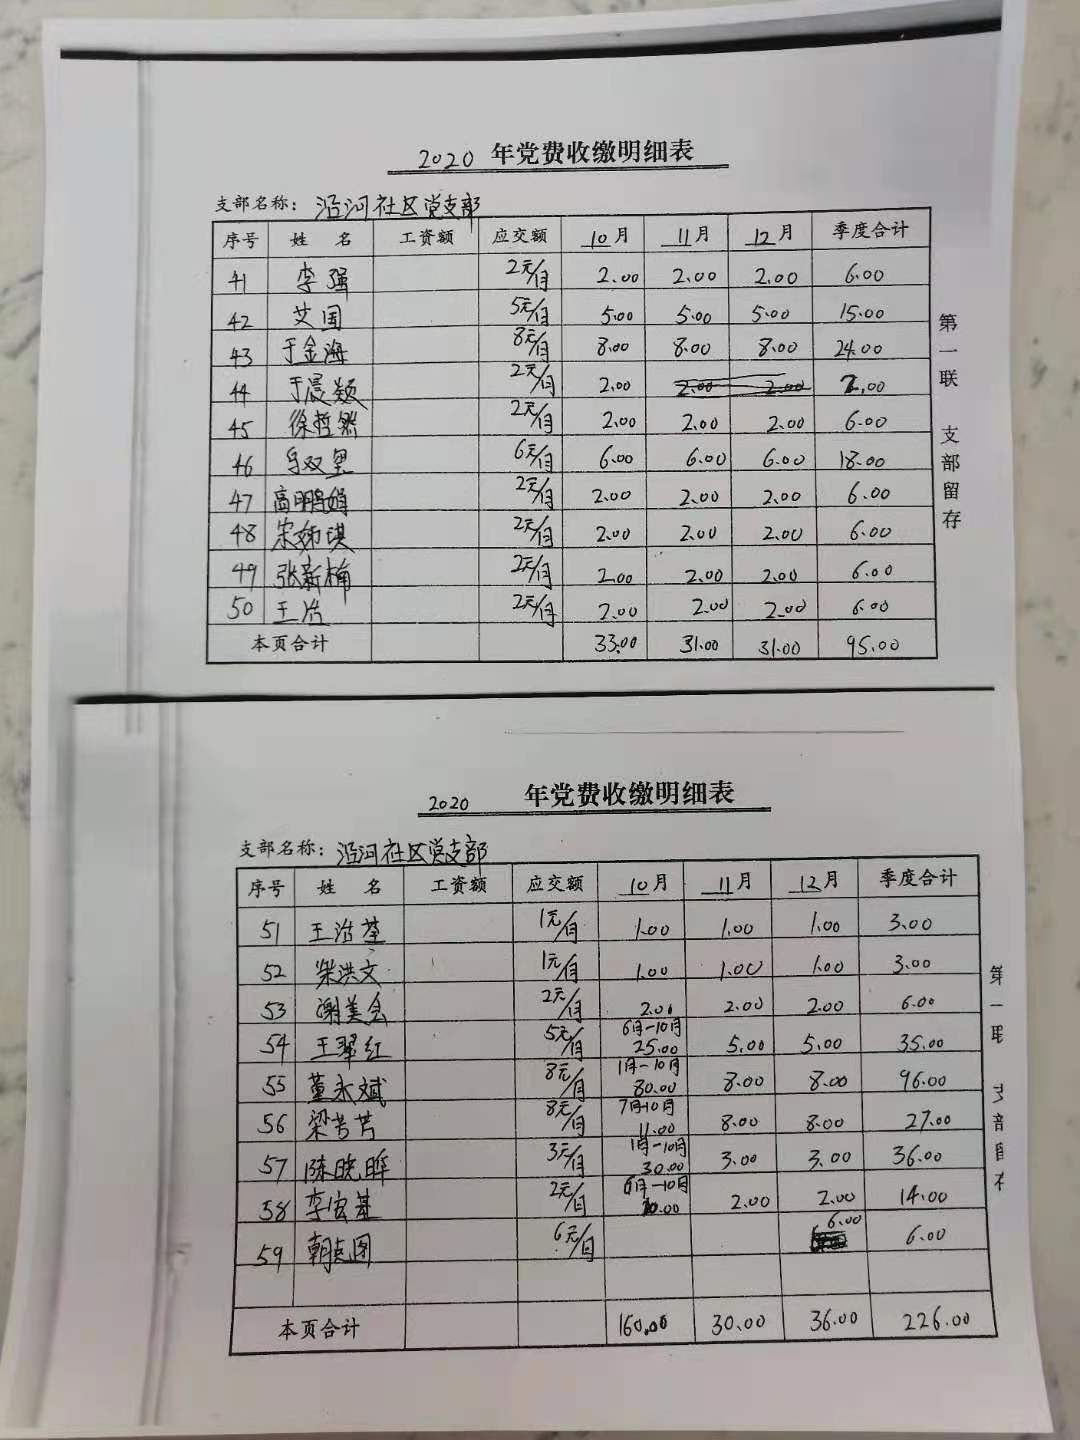 2020 年党费收缴明细表
支部名称: 沿河社区党支部
序号 姓 名 工资额 应交额 10月 11月 12月 季度合计
41 李强 2元/月 2.00 2.00 2.00 6.00
42 艾国 5元/月 5.00 5.00 5.00 15.00
43 于金海 8元/月 8.00 8.00 8.00 24.00
44 于晨颖 2元/月 2.00 2.00 2.00 2.00
45 徐哲然 2元/月 2.00 2.00 2.00 6.00
46 双 6元/月 6.00 6.00 6.00 18.00
47 高鹏娟 2元/月 2.00 2.00 2.00 6.00
48 宋姊琪 2元/月 2.00 2.00 2.00 6.00
49 张新楠 2元/月 2.00 2.00 2.00 6.00
50 王冶 2元/月 2.00 2.00 2.00 6.00
本页合计 33.00 31.00 31.00 95.00
第一联 支部留存
2020 年党费收缴明细表
支部名称: 沿河社区党支部
序号 姓 名 工资额 应交额 10月 11月 12月 季度合计
51 王治 1元/月 1.00 1.00 1.00 3.00
52 梁洪文 1元/月 1.00 1.00 1.00 3.00
53 谢美 2元/月 2.00 2.00 2.00 6.00
54 王翠红 5元/月 6月-10月 25.00 5.00 5.00 35.00
55 董永斌 8元/月 1月-10月 80.00 8.00 8.00 96.00
56 梁芳芳 8元/月 7月10月 11.00 8.00 8.00 27.00
57 陈晓晖 3元/月 1月-10月 30.00 3.00 3.00 36.00
58 李宏基 2元/月 6月-10月 10.00 2.00 2.00 14.00
59 朝克图 6元/月 6.00 6.00
本页合计 160.00 30.00 36.00 226.00
第一联